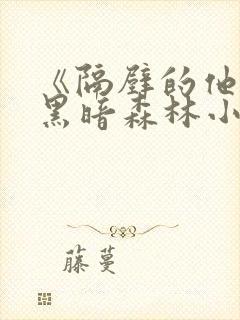 《隔壁的他
黑暗森林小
藤蔓